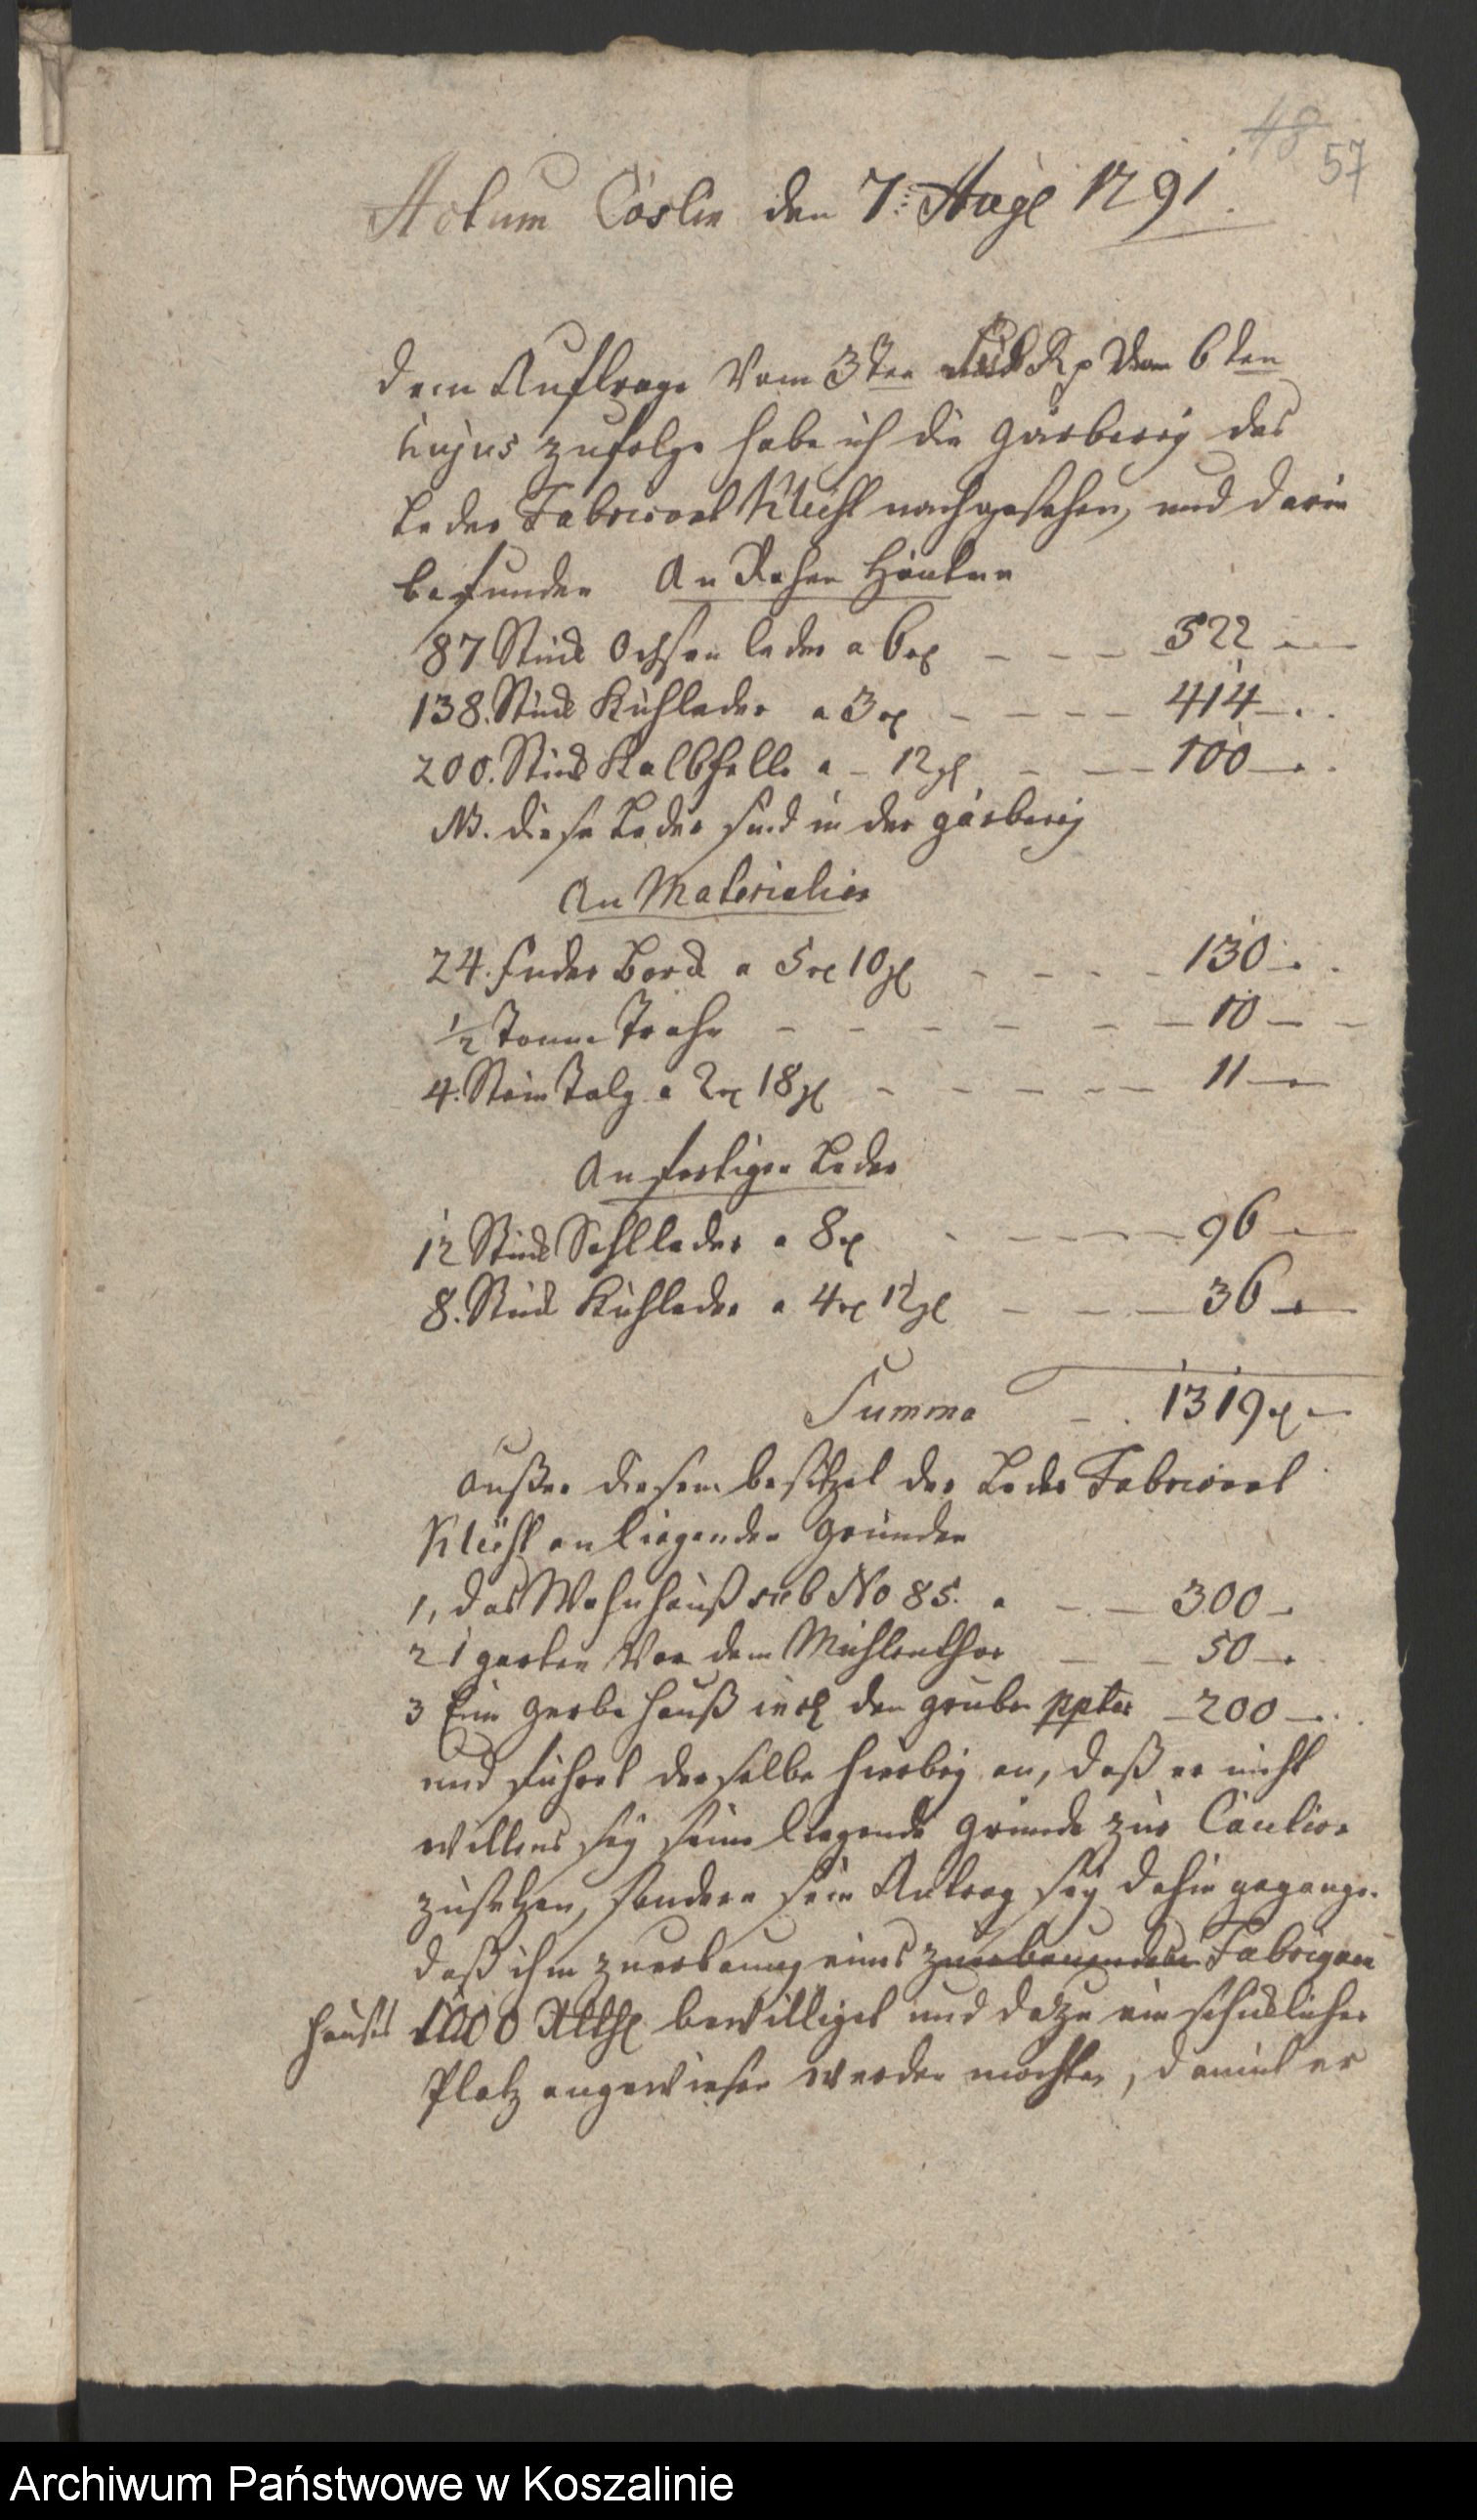 48
57
Actum Cöslin den 7. Aug 1791.
dem Auftrage vom 3ten Rp vom 6ten
hujus zufolge habe ich die Gärberey des
Leder Fabricant Klüht nachgesehen, und darin
befunden An Rohen Häuten
87 Stück Ochsen leder a 6 rt – – – 522 –
138. Stück Kuhleder a 3 rt – – – – 414 –
200. Stück Kalbfelle a – 12 gl – – 100 –
NB. diese Leder sind in der gärberey
An Materialien
24. Fuder Borck a 5 rt 10 gl – – – – 130 –
1/2 Tonne Trahn – – – – – – 10 – –
4. Stein Talg a 2 rt 18 gl – – – – – 11 –
An fertigen Leder
12 Stück Sohlleder a 8 rt – – – – 96 –
8. Stück Kuhleder a 4 rt 12 gl – – – 36 –
Summa – 1319 rt –
Außer diesem besitzet der Leder Fabricant
Klüht an liegenden Gründen
1, das Wohnhauß sub No 85. a – – 300 –
2 1 garten vor dem Mühlenthor – – 50 –
3 Ein Gerbe Hauß incl der grube ppter – 200 –
und führet derselbe hierbey an, daß er nicht
willens sey seine liegende Gründe zur Caution
zusetzen, sondern sein Antrag sey dahin gegangen
daß ihm zuerbauung eines zuerbauenden Fabriquen
Hauses 1000 Rthl bewilliget und dazu ein schicklicher
Platz angewiesen werden möchte, damit er
Archiwum Państwowe w Koszalinie